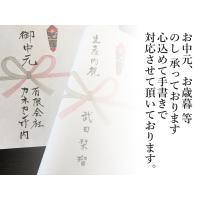 お中元、お歳暮 等
のし承っております
心込めて手書きで
対応させて頂いております。
御中元
有限会社
生産内祝
武田